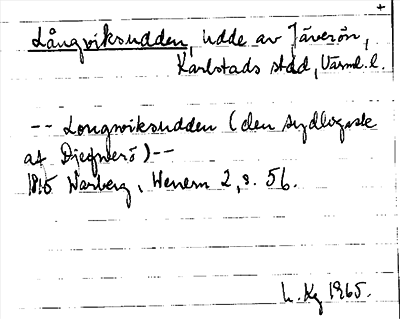 +
Långviksudden, udde av Jäverön,
Karlstads stad, Värml. l.
-- Longwiksudden (den sydligaste
af Djefverö) --
1815 Warberg, Wenern 2, s. 56.
L. Kg 1965.